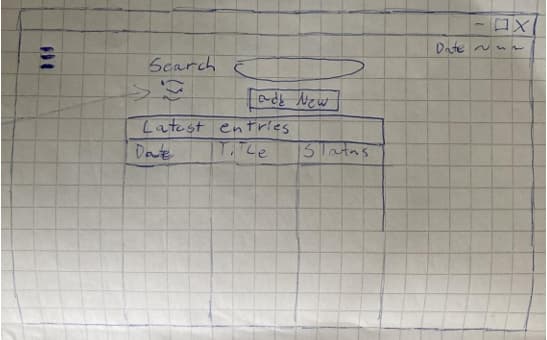 Date
Search
add New
Latest entries
Date TiTLe Status